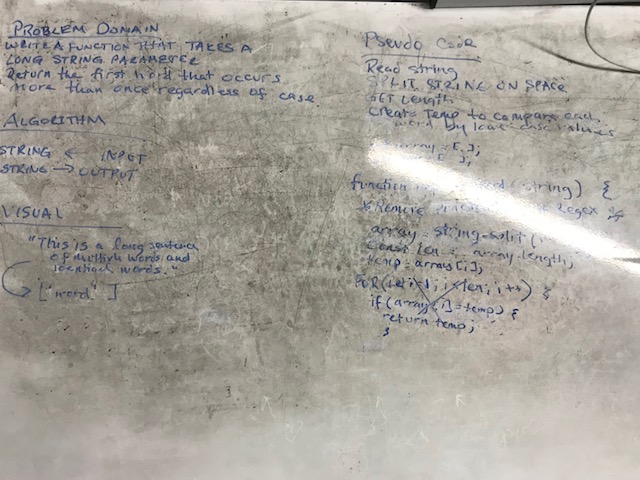 PROBLEM DOMAIN
WRITE A FUNCTION THAT TAKES A
LONG STRING PARAMETER
Return the first word that occurs
more than once regardless of case
ALGORITHM
STRING ← INPUT
STRING → OUTPUT
VISUAL
"This is a long sentence
of multiple words and
identical words."
['word']
Pseudo Code
Read string
SPLIT STRING ON SPACE
GET Length
Create Temp to compare each
word by lower case values
array = [ ];
= [ ];
function (string) {
*Remove Regex
array = string.split('
const len = array.length;
temp = array[i];
FOR(let i=1; i<len; i++) {
if (array[i]=temp) {
return temp;
}